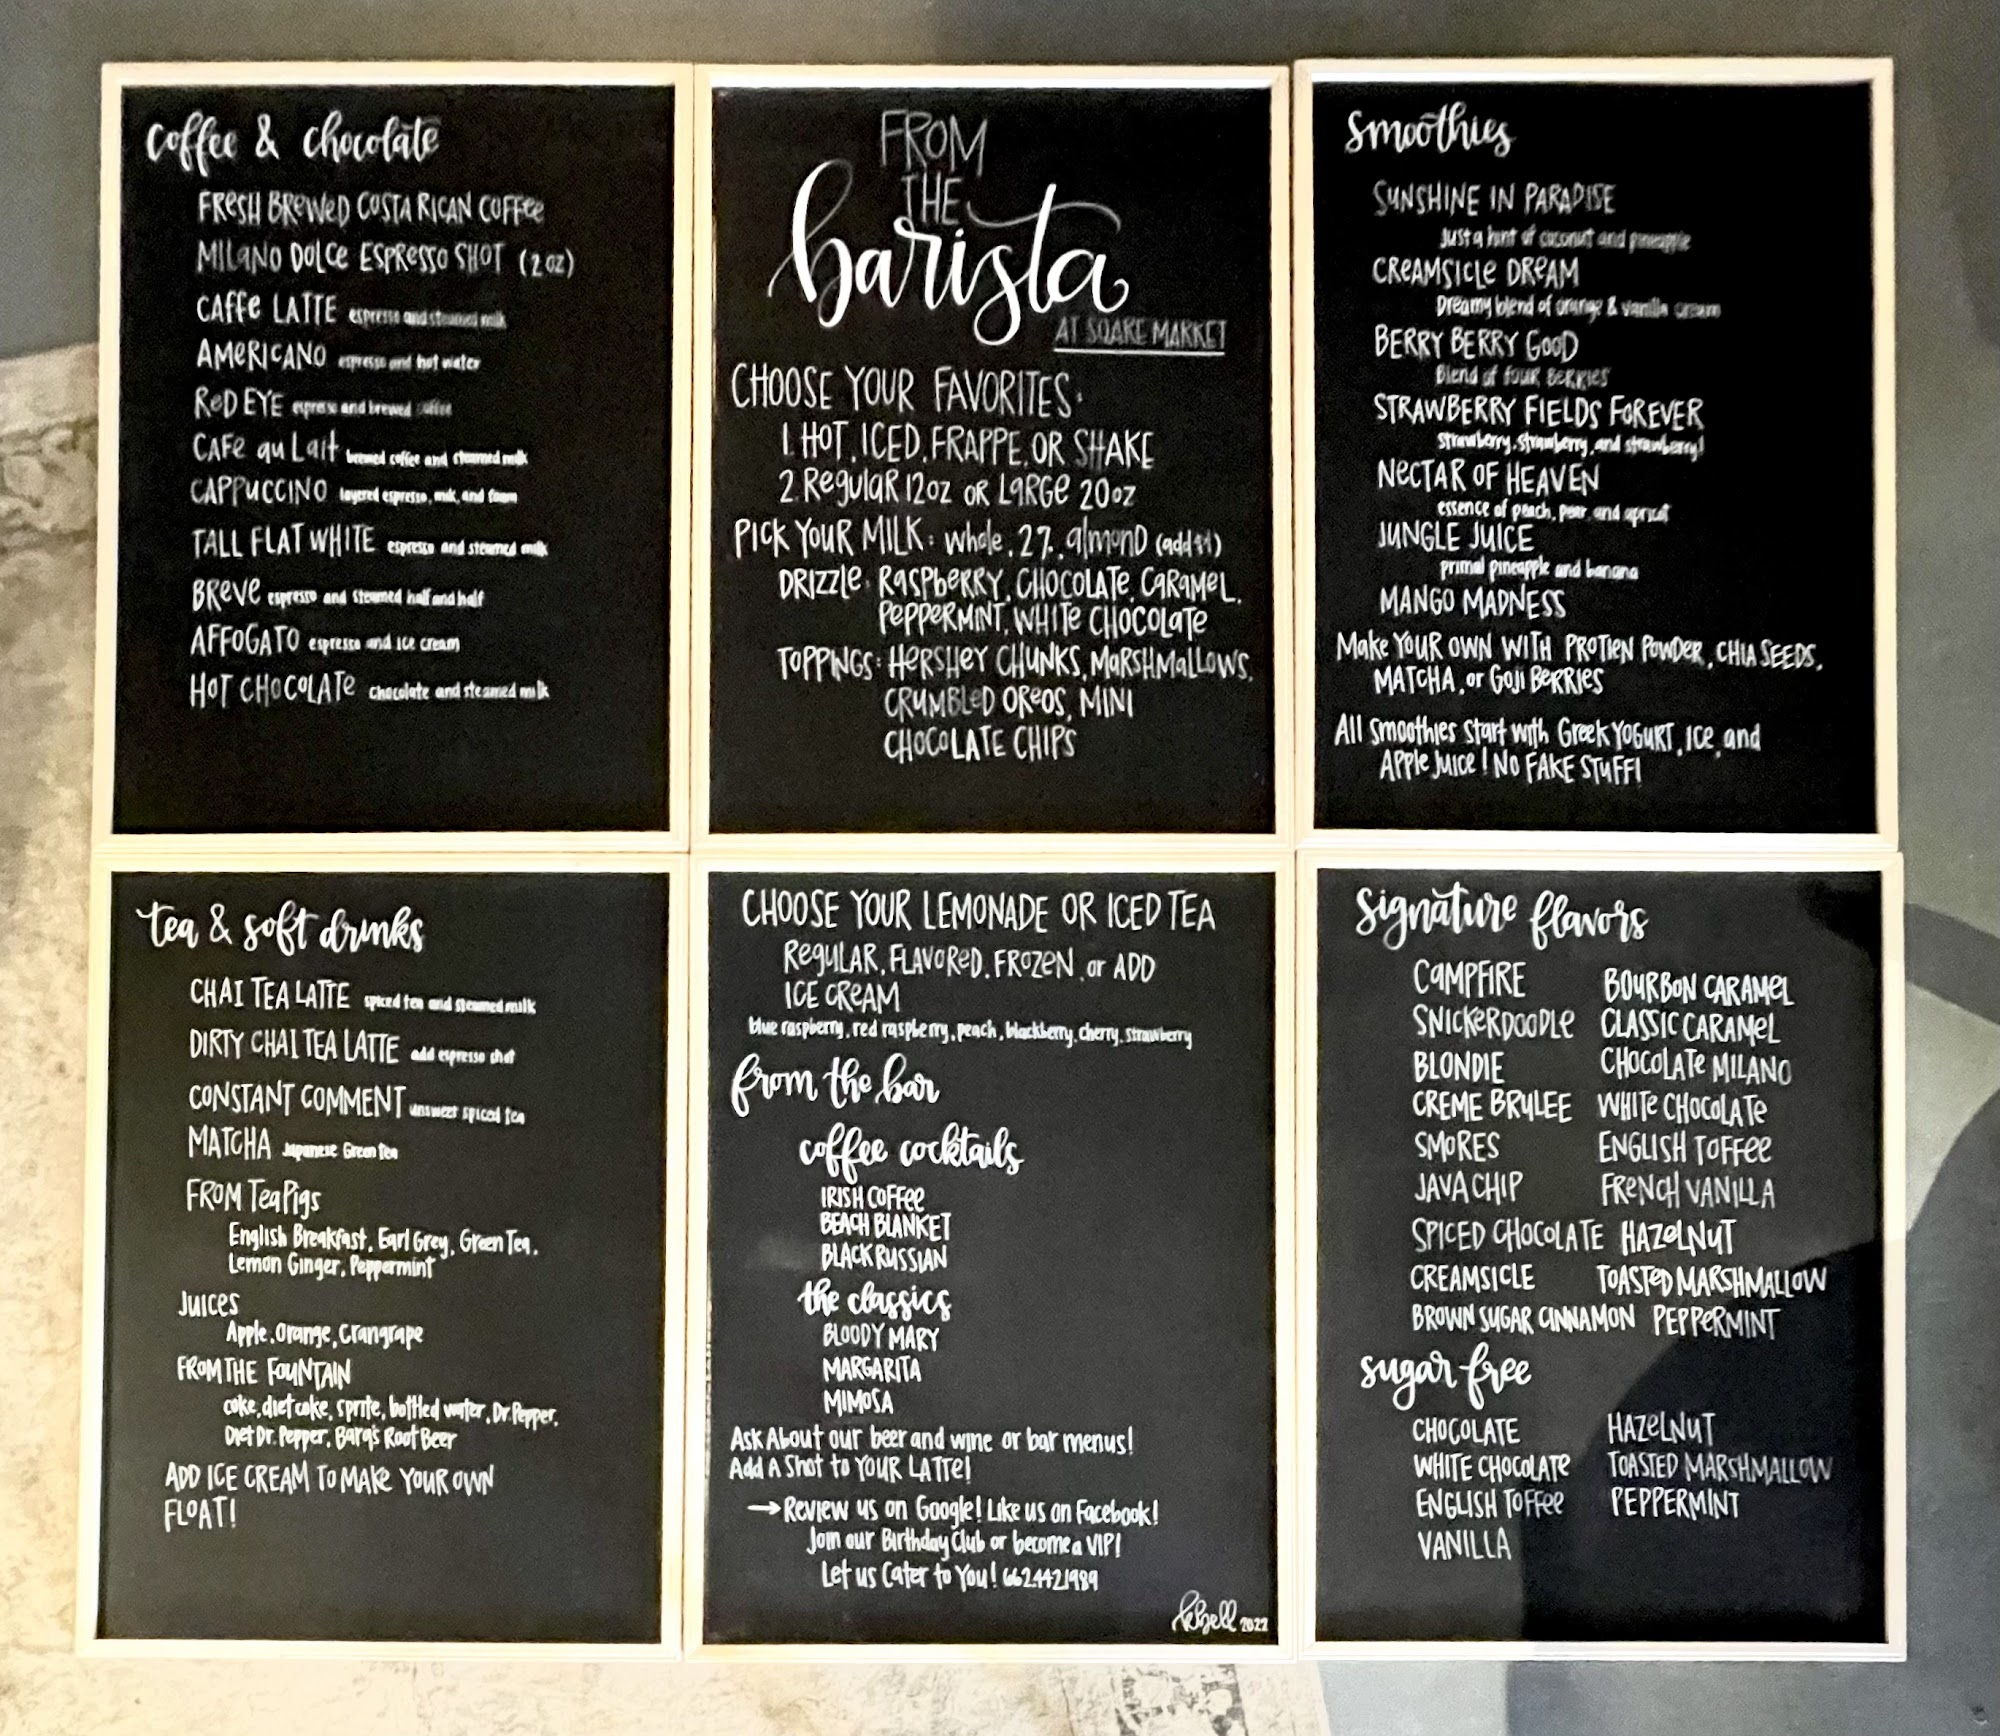 coffee & chocolate
FRESH BREWED COSTA RICAN COFFEE
MILANO DOLCE ESPRESSO SHOT (2 oz)
CAFFE LATTE espresso and steamed milk
AMERICANO espresso and hot water
RED EYE espresso and brewed coffee
CAFE au Lait brewed coffee and steamed milk
CAPPUCCINO layered espresso, milk, and foam
TALL FLAT WHITE espresso and steamed milk
BREVE espresso and steamed half and half
AFFOGATO espresso and ice cream
HOT CHOCOLATE chocolate and steamed milk
FROM
THE
barista
AT SQARE MARKET
CHOOSE YOUR FAVORITES:
1. HOT, ICED, FRAPPE, OR SHAKE
2. Regular 12oz OR LARGE 20oz
PICK YOUR MILK: whole, 2%, almond (add $1)
DRIZZLE: RASPBERRY, CHOCOLATE, CARAMEL,
PEPPERMINT, WHITE CHOCOLATE
TOPPINGS: HERSHEY CHUNKS, MARSHMALLOWS,
CRUMBLED OREOS, MINI
CHOCOLATE CHIPS
smoothies
SUNSHINE IN PARADISE
Just a hint of coconut and pineapple
CREAMSICLE DREAM
Dreamy blend of orange & vanilla cream
BERRY BERRY GOOD
Blend of four BERRIES
STRAWBERRY FIELDS FOREVER
strawberry, strawberry, and strawberry!
NECTAR OF HEAVEN
essence of peach, pear, and apricot
JUNGLE JUICE
primal pineapple and banana
MANGO MADNESS
Make YOUR OWN WITH PROTIEN POWDER, CHIA SEEDS,
MATCHA, or GOJI BERRIES
All Smoothies Start with Greek YOGURT, ICE, and
Apple Juice! NO FAKE STUFF!
tea & soft drinks
CHAI TEA LATTE spiced tea and steamed milk
DIRTY CHAI TEA LATTE add espresso shot
CONSTANT COMMENT unsweet spiced tea
MATCHA Japanese Green tea
FROM TeaPigs
English Breakfast, Earl Grey, Green Tea,
Lemon Ginger, Peppermint
Juices
Apple, Orange, Crangrape
FROM THE FOUNTAIN
coke, diet coke, sprite, bottled water, Dr. Pepper,
Diet Dr. Pepper, Barq's Root Beer
ADD ICE CREAM TO MAKE YOUR OWN
FLOAT!
CHOOSE YOUR LEMONADE OR ICED TEA
REGULAR, FLAVORED, FROZEN, or ADD
ICE CREAM
blue raspberry, red raspberry, peach, blackberry, cherry, strawberry
from the bar
coffee cocktails
IRISH COFFEE
BEACH BLANKET
BLACK RUSSIAN
the classics
BLOODY MARY
MARGARITA
MIMOSA
Ask About our beer and wine or bar menus!
Add A Shot to YOUR LATTE!
→ Review us on Google! Like us on Facebook!
Join our Birthday Club or become a VIP!
Let us Cater to You! 662.442.1989
2022
signature flavors
CAMPFIRE BOURBON CARAMEL
SNICKERDOODLE CLASSIC CARAMEL
BLONDIE CHOCOLATE MILANO
CREME BRULEE WHITE CHOCOLATE
SMORES ENGLISH TOFFEE
JAVA CHIP FRENCH VANILLA
SPICED CHOCOLATE HAZELNUT
CREAMSICLE TOASTED MARSHMALLOW
BROWN SUGAR CINNAMON PEPPERMINT
sugar free
CHOCOLATE HAZELNUT
WHITE CHOCOLATE TOASTED MARSHMALLOW
ENGLISH TOFFEE PEPPERMINT
VANILLA